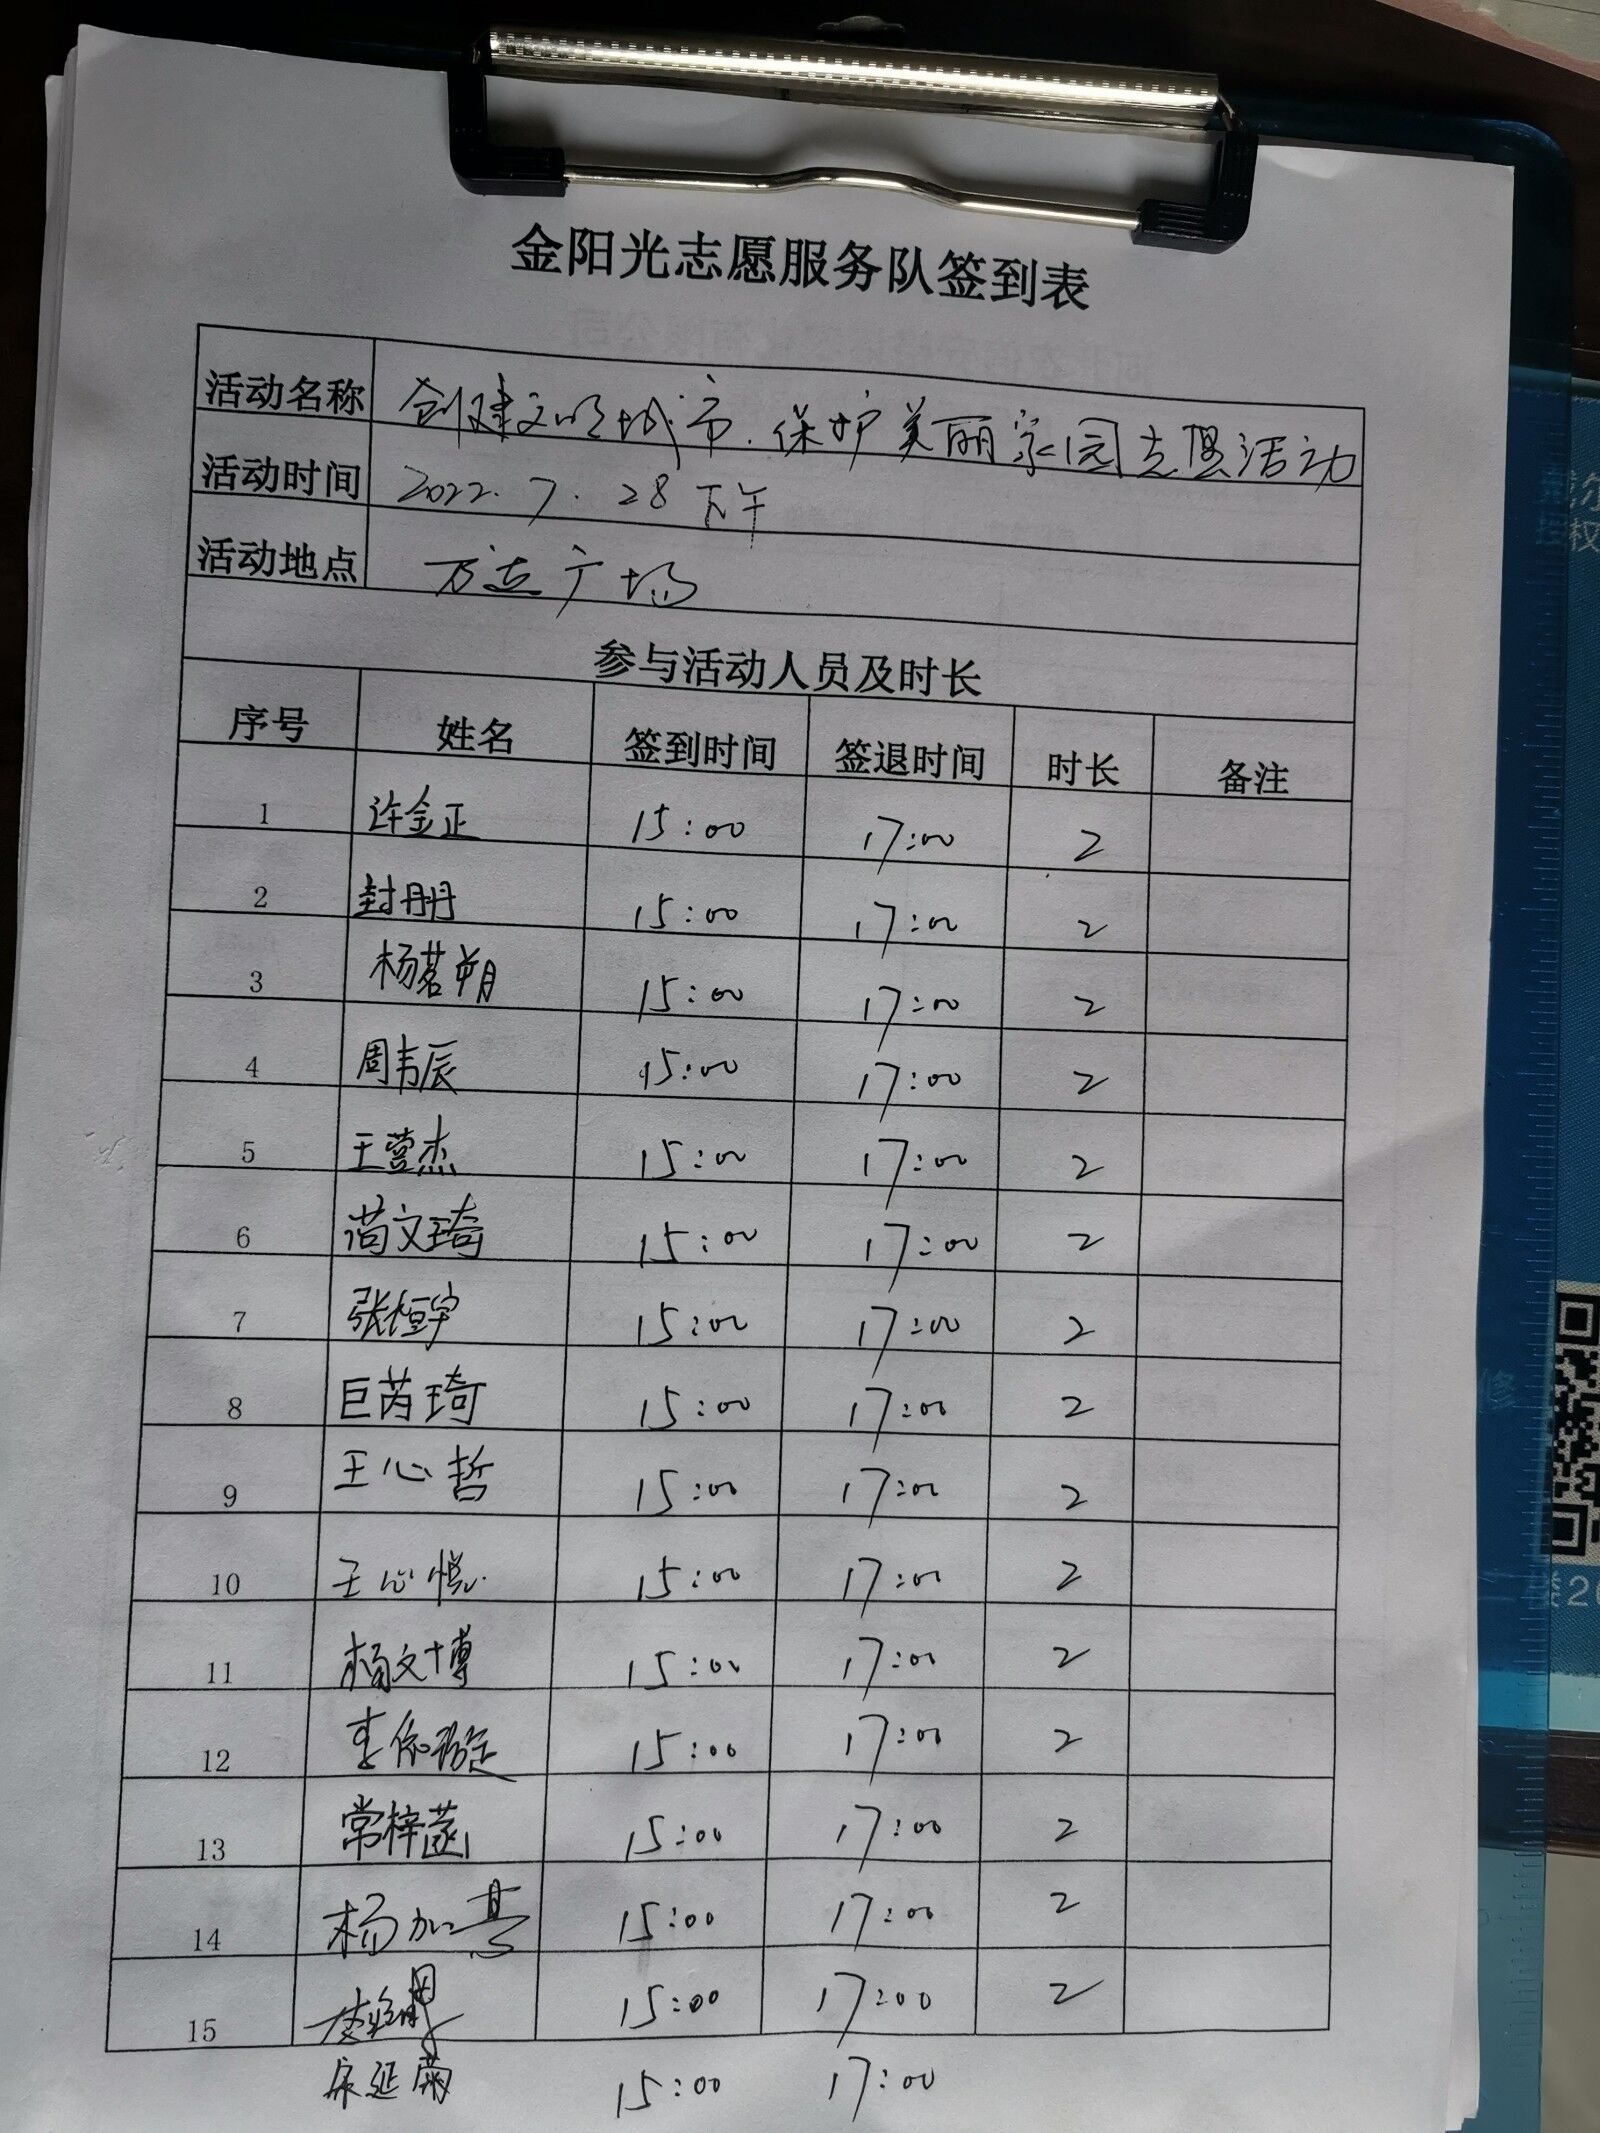 金阳光志愿服务队签到表
活动名称 创建文明城市.保护美丽家园志愿活动
活动时间 2022.7.28下午
活动地点 万达广场
参与活动人员及时长
序号 姓名 签到时间 签退时间 时长 备注
1 许金正 15:00 17:00 2
2 封丹丹 15:00 17:00 2
3 杨茗朔 15:00 17:00 2
4 周韦辰 15:00 17:00 2
5 王营杰 15:00 17:00 2
6 文琦 15:00 17:00 2
7 张桓宇 15:00 17:00 2
8 巨芮琦 15:00 17:00 2
9 王心哲 15:00 17:00 2
10 王心悦 15:00 17:00 2
11 杨文博 15:00 17:00 2
12 李依 15:00 17:00 2
13 常梓菡 15:00 17:00 2
14 杨加 15:00 17:00 2
15 15:00 17:00 2
延菊 15:00 17:00
权
修
楼2